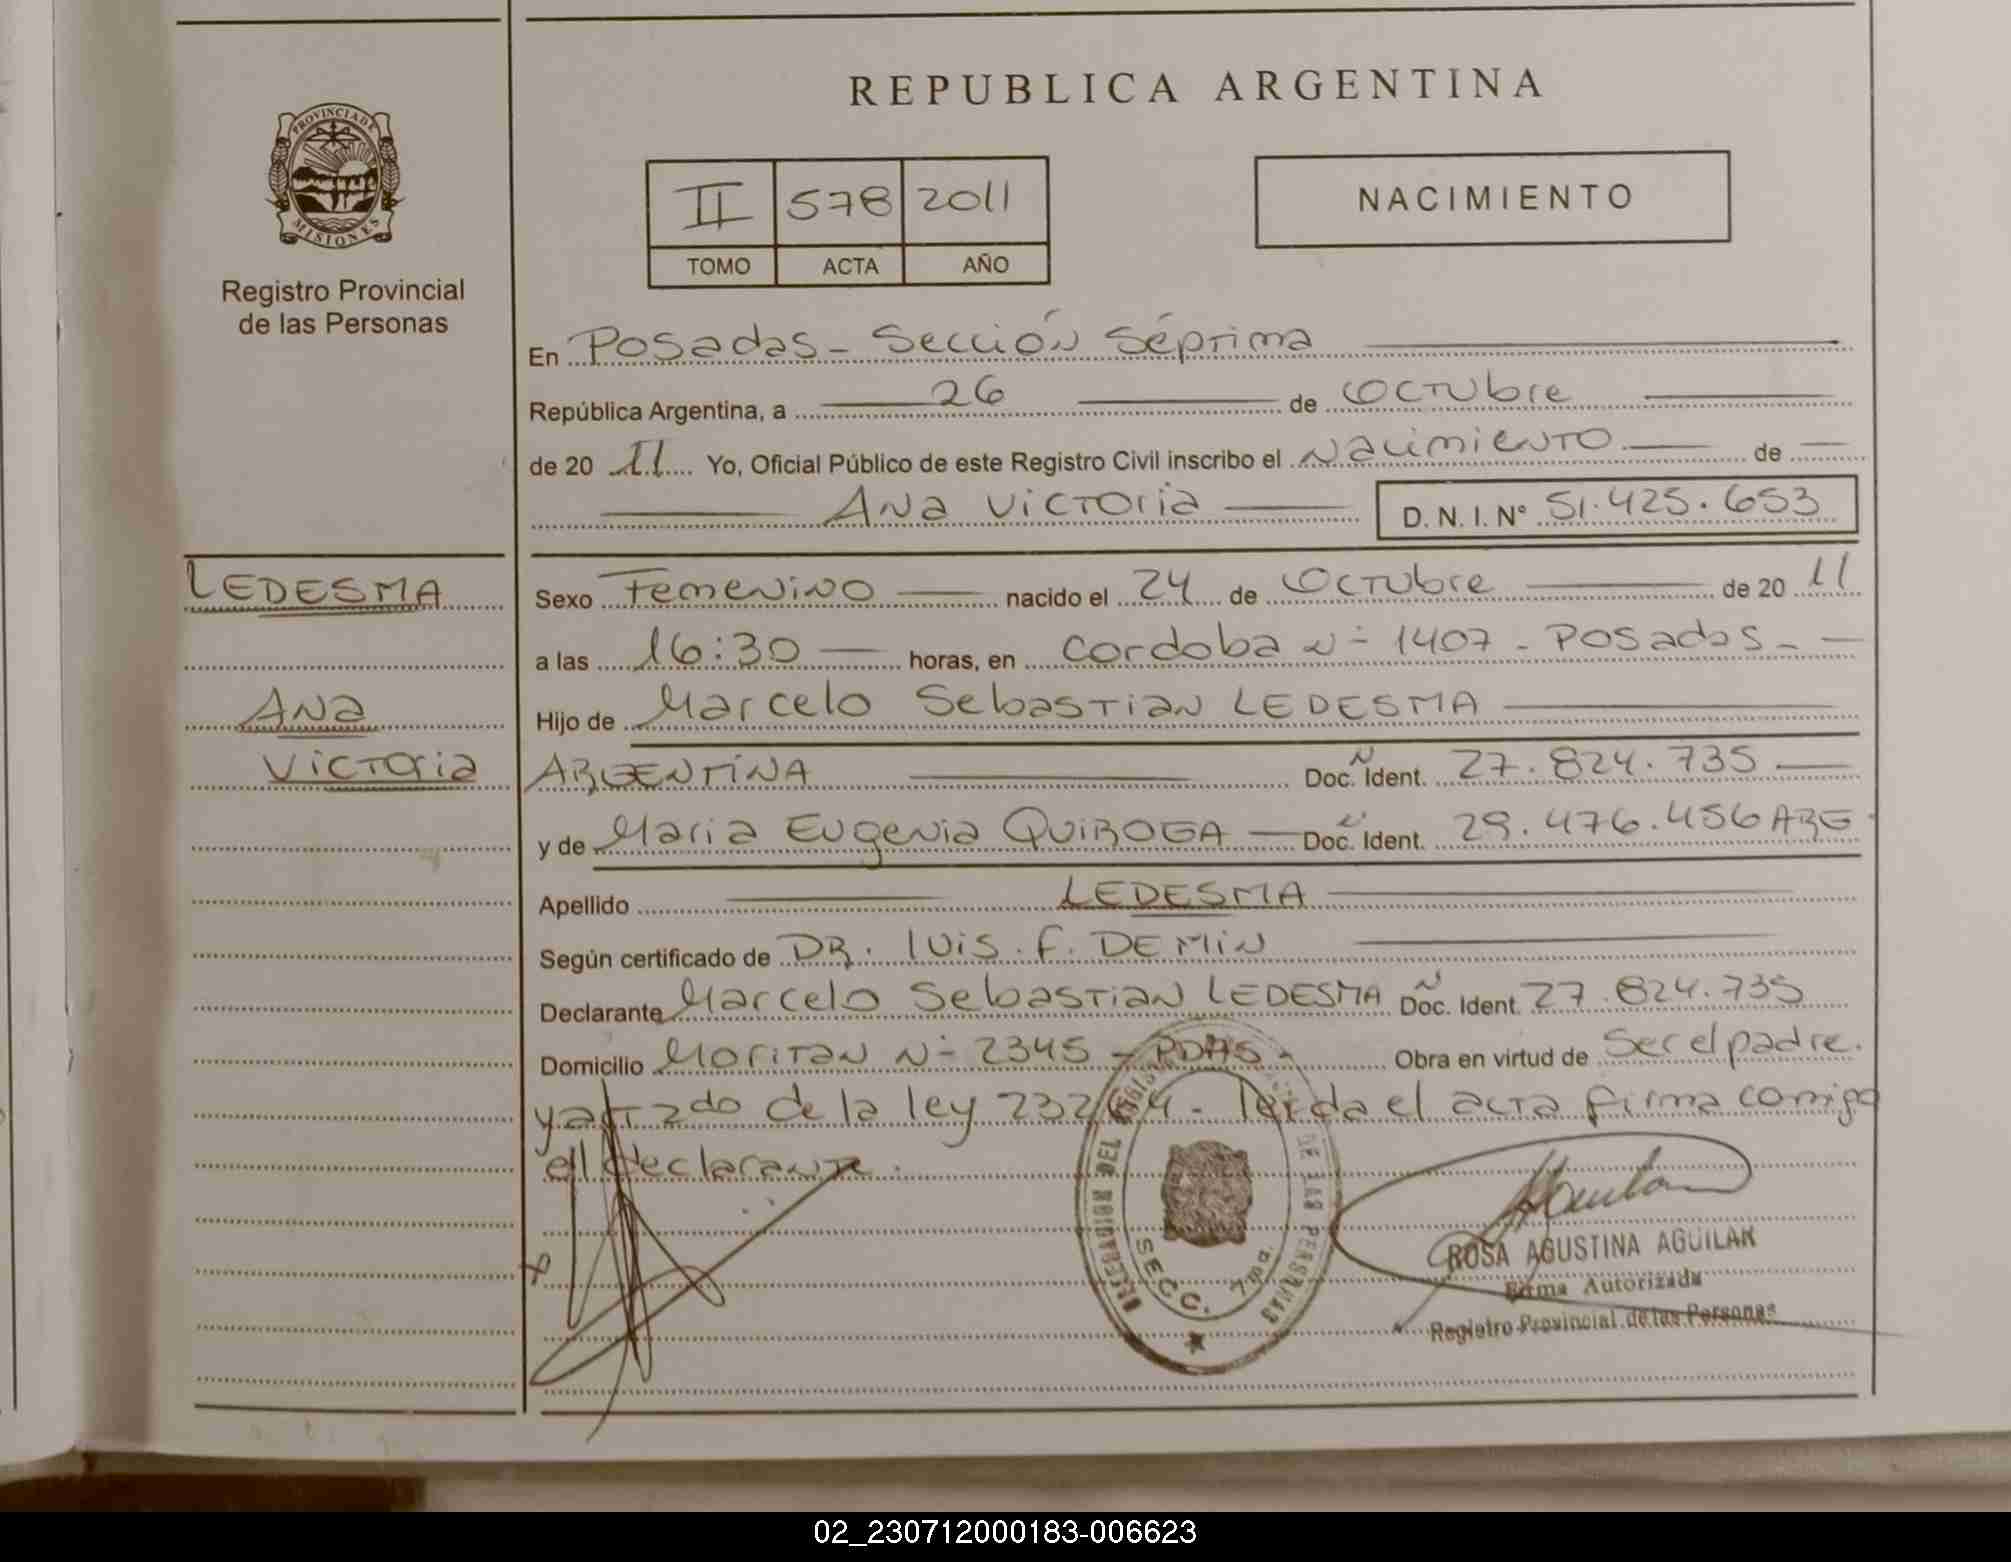 REPUBLICA ARGENTINA
PROVINCIA DE
MISIONES
Registro Provincial
de las Personas
II 578 2011
TOMO ACTA AÑO
NACIMIENTO
En Posadas - Sección Séptima
República Argentina, a 26 de Octubre
de 20 11 Yo, Oficial Público de este Registro Civil inscribo el Nacimiento de
Ana Victoria D. N. I. Nº 51.425.653
LEDESMA
Ana
Victoria
Sexo Femenino nacido el 24 de Octubre de 20 11
a las 16:30 horas, en Cordoba Nº 1407 - Posadas -
Hijo de Marcelo Sebastian LEDESMA
ARGENTINA Doc. Ident. 27.824.735
y de Maria Eugenia QUIROGA Doc. Ident. 29.476.456 ARG.
Apellido LEDESMA
Según certificado de DR. Luis F. DEMIN
Declarante Marcelo Sebastian LEDESMA Doc. Ident. 27.824.735
Domicilio Moritan Nº 2345 - PDAS - Obra en virtud de Ser el padre.
y art 2do de la ley 23264 - Leida el acta firma comigo
el declarante.
DEL REGISTRO
DE LAS PERSONAS
SECC. 7ma.
ROSA AGUSTINA AGUILAR
Firma Autorizada
Registro Provincial de las Personas
02_230712000183-006623